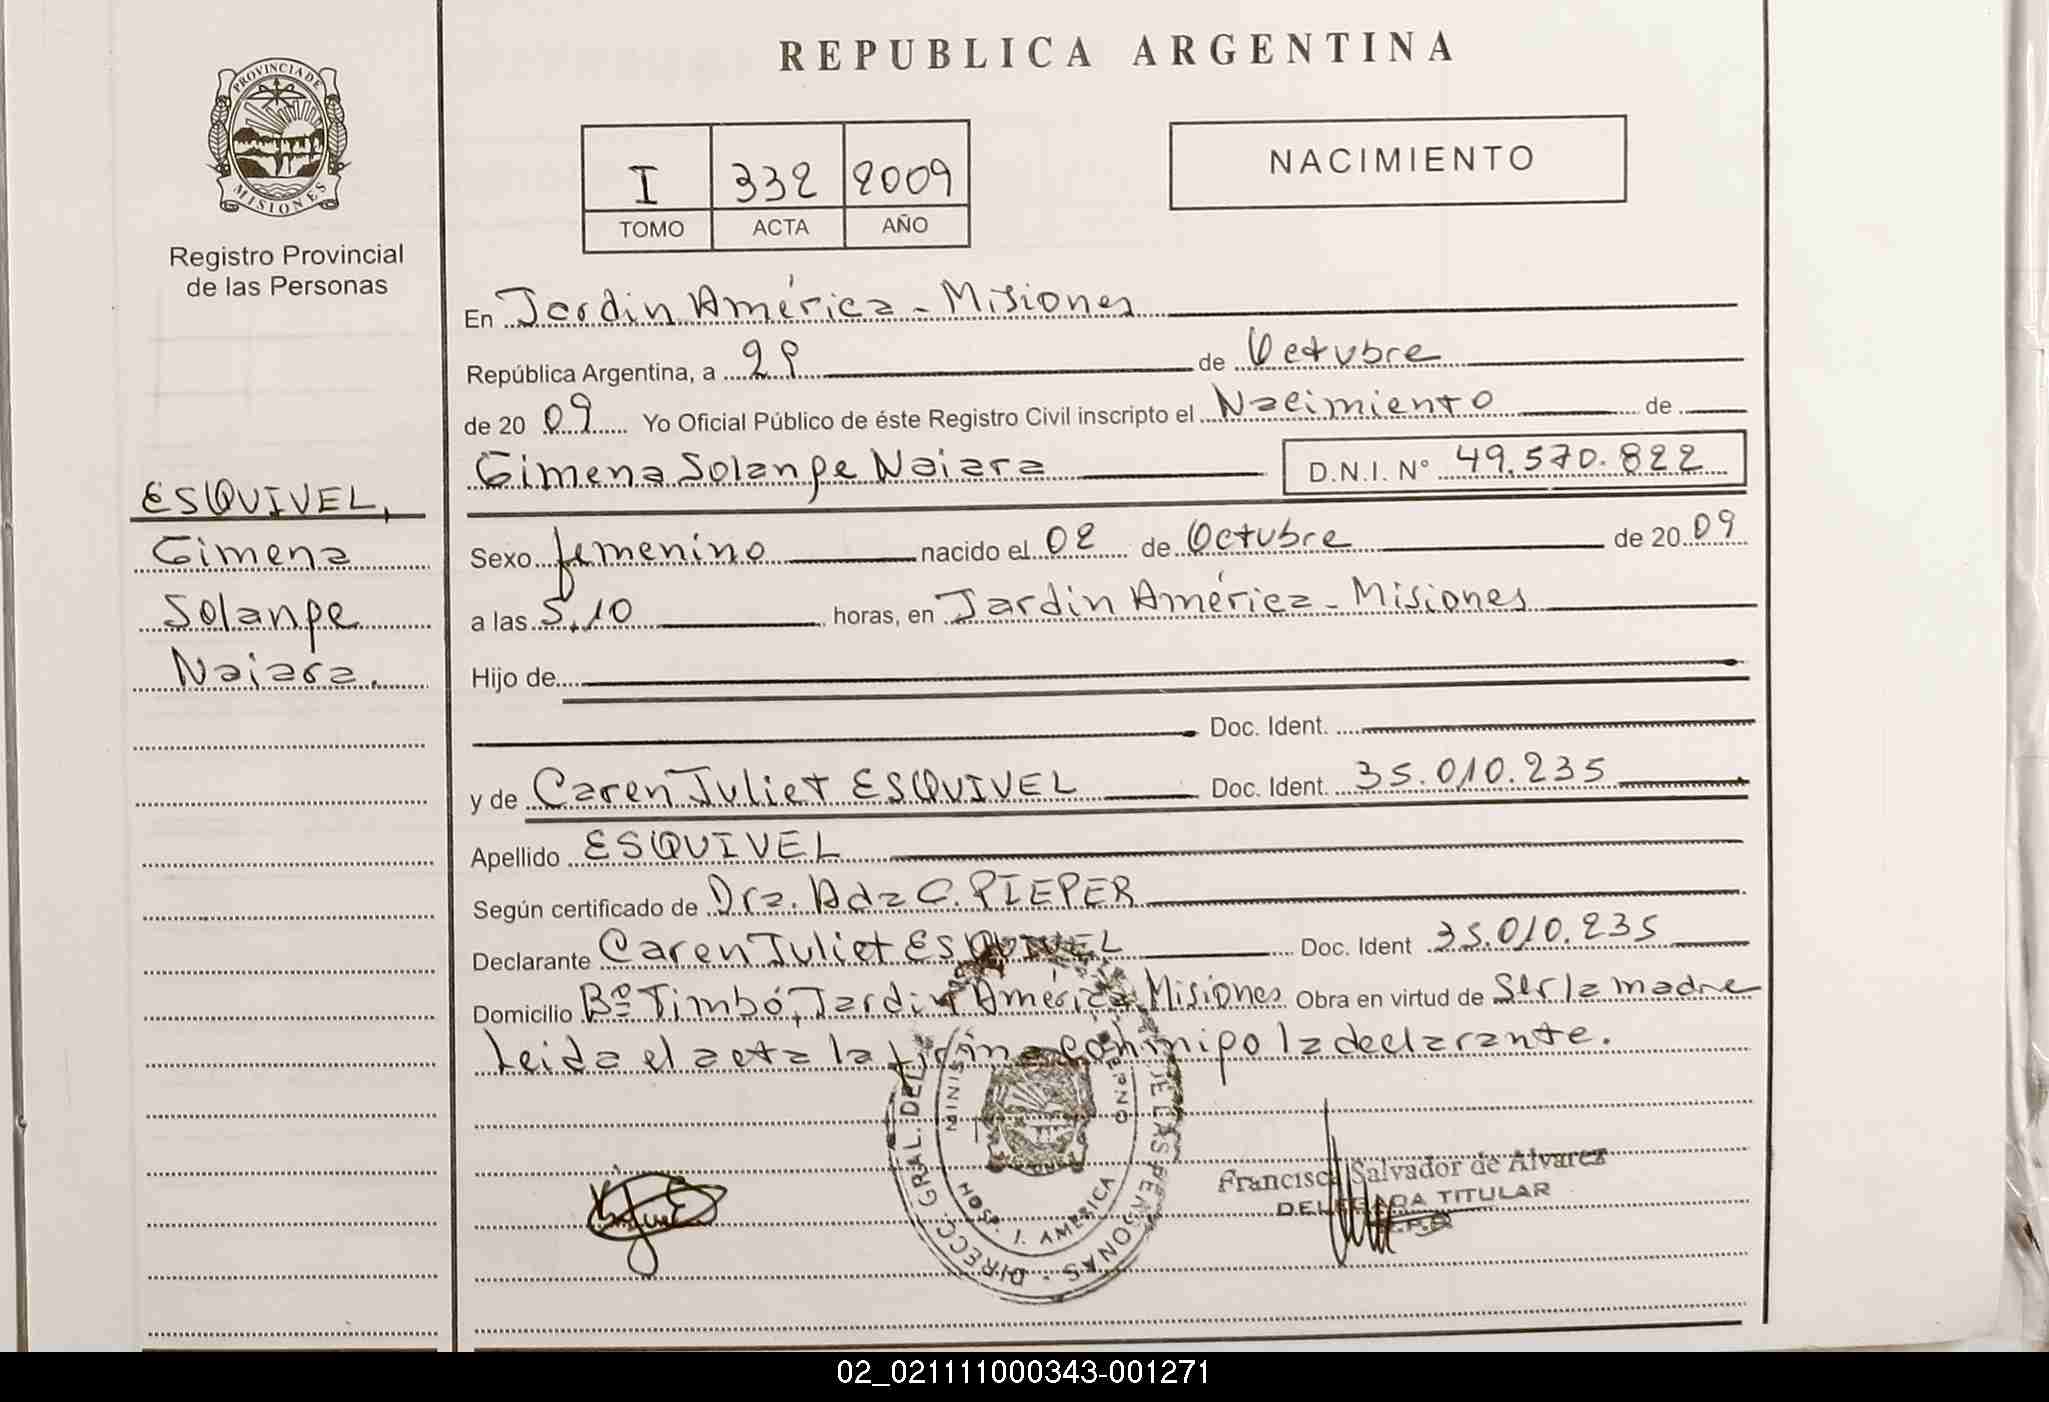 REPUBLICA ARGENTINA
PROVINCIA DE
MISIONES
Registro Provincial
de las Personas
I 332 2009
TOMO ACTA AÑO
NACIMIENTO
En Jardin América - Misiones
República Argentina, a 29 de Octubre
de 20 09 Yo Oficial Público de éste Registro Civil inscripto el Nacimiento de
Gimena Solange Naiara D.N.I. N° 49.570.822
ESQUIVEL,
Gimena
Solange
Naiara.
Sexo femenino nacido el 02 de Octubre de 20 09
a las 5,10 horas, en Jardin América - Misiones
Hijo de
Doc. Ident.
y de Caren Juliet ESQUIVEL Doc. Ident. 35.010.235
Apellido ESQUIVEL
Según certificado de Dra. Ada C. PIEPER
Declarante Caren Juliet ESQUIVEL Doc. Ident 35.010.235
Domicilio Bº Timbó, Jardin América, Misiones Obra en virtud de Ser la madre
Leida el acta la firma conmigo la declarante.
DIRECC. GRAL. DEL DE LAS PERSONAS
HOSP. J. AMERICA
Francisca Salvador de Alvarez
DELEGADA TITULAR
02_021111000343-001271